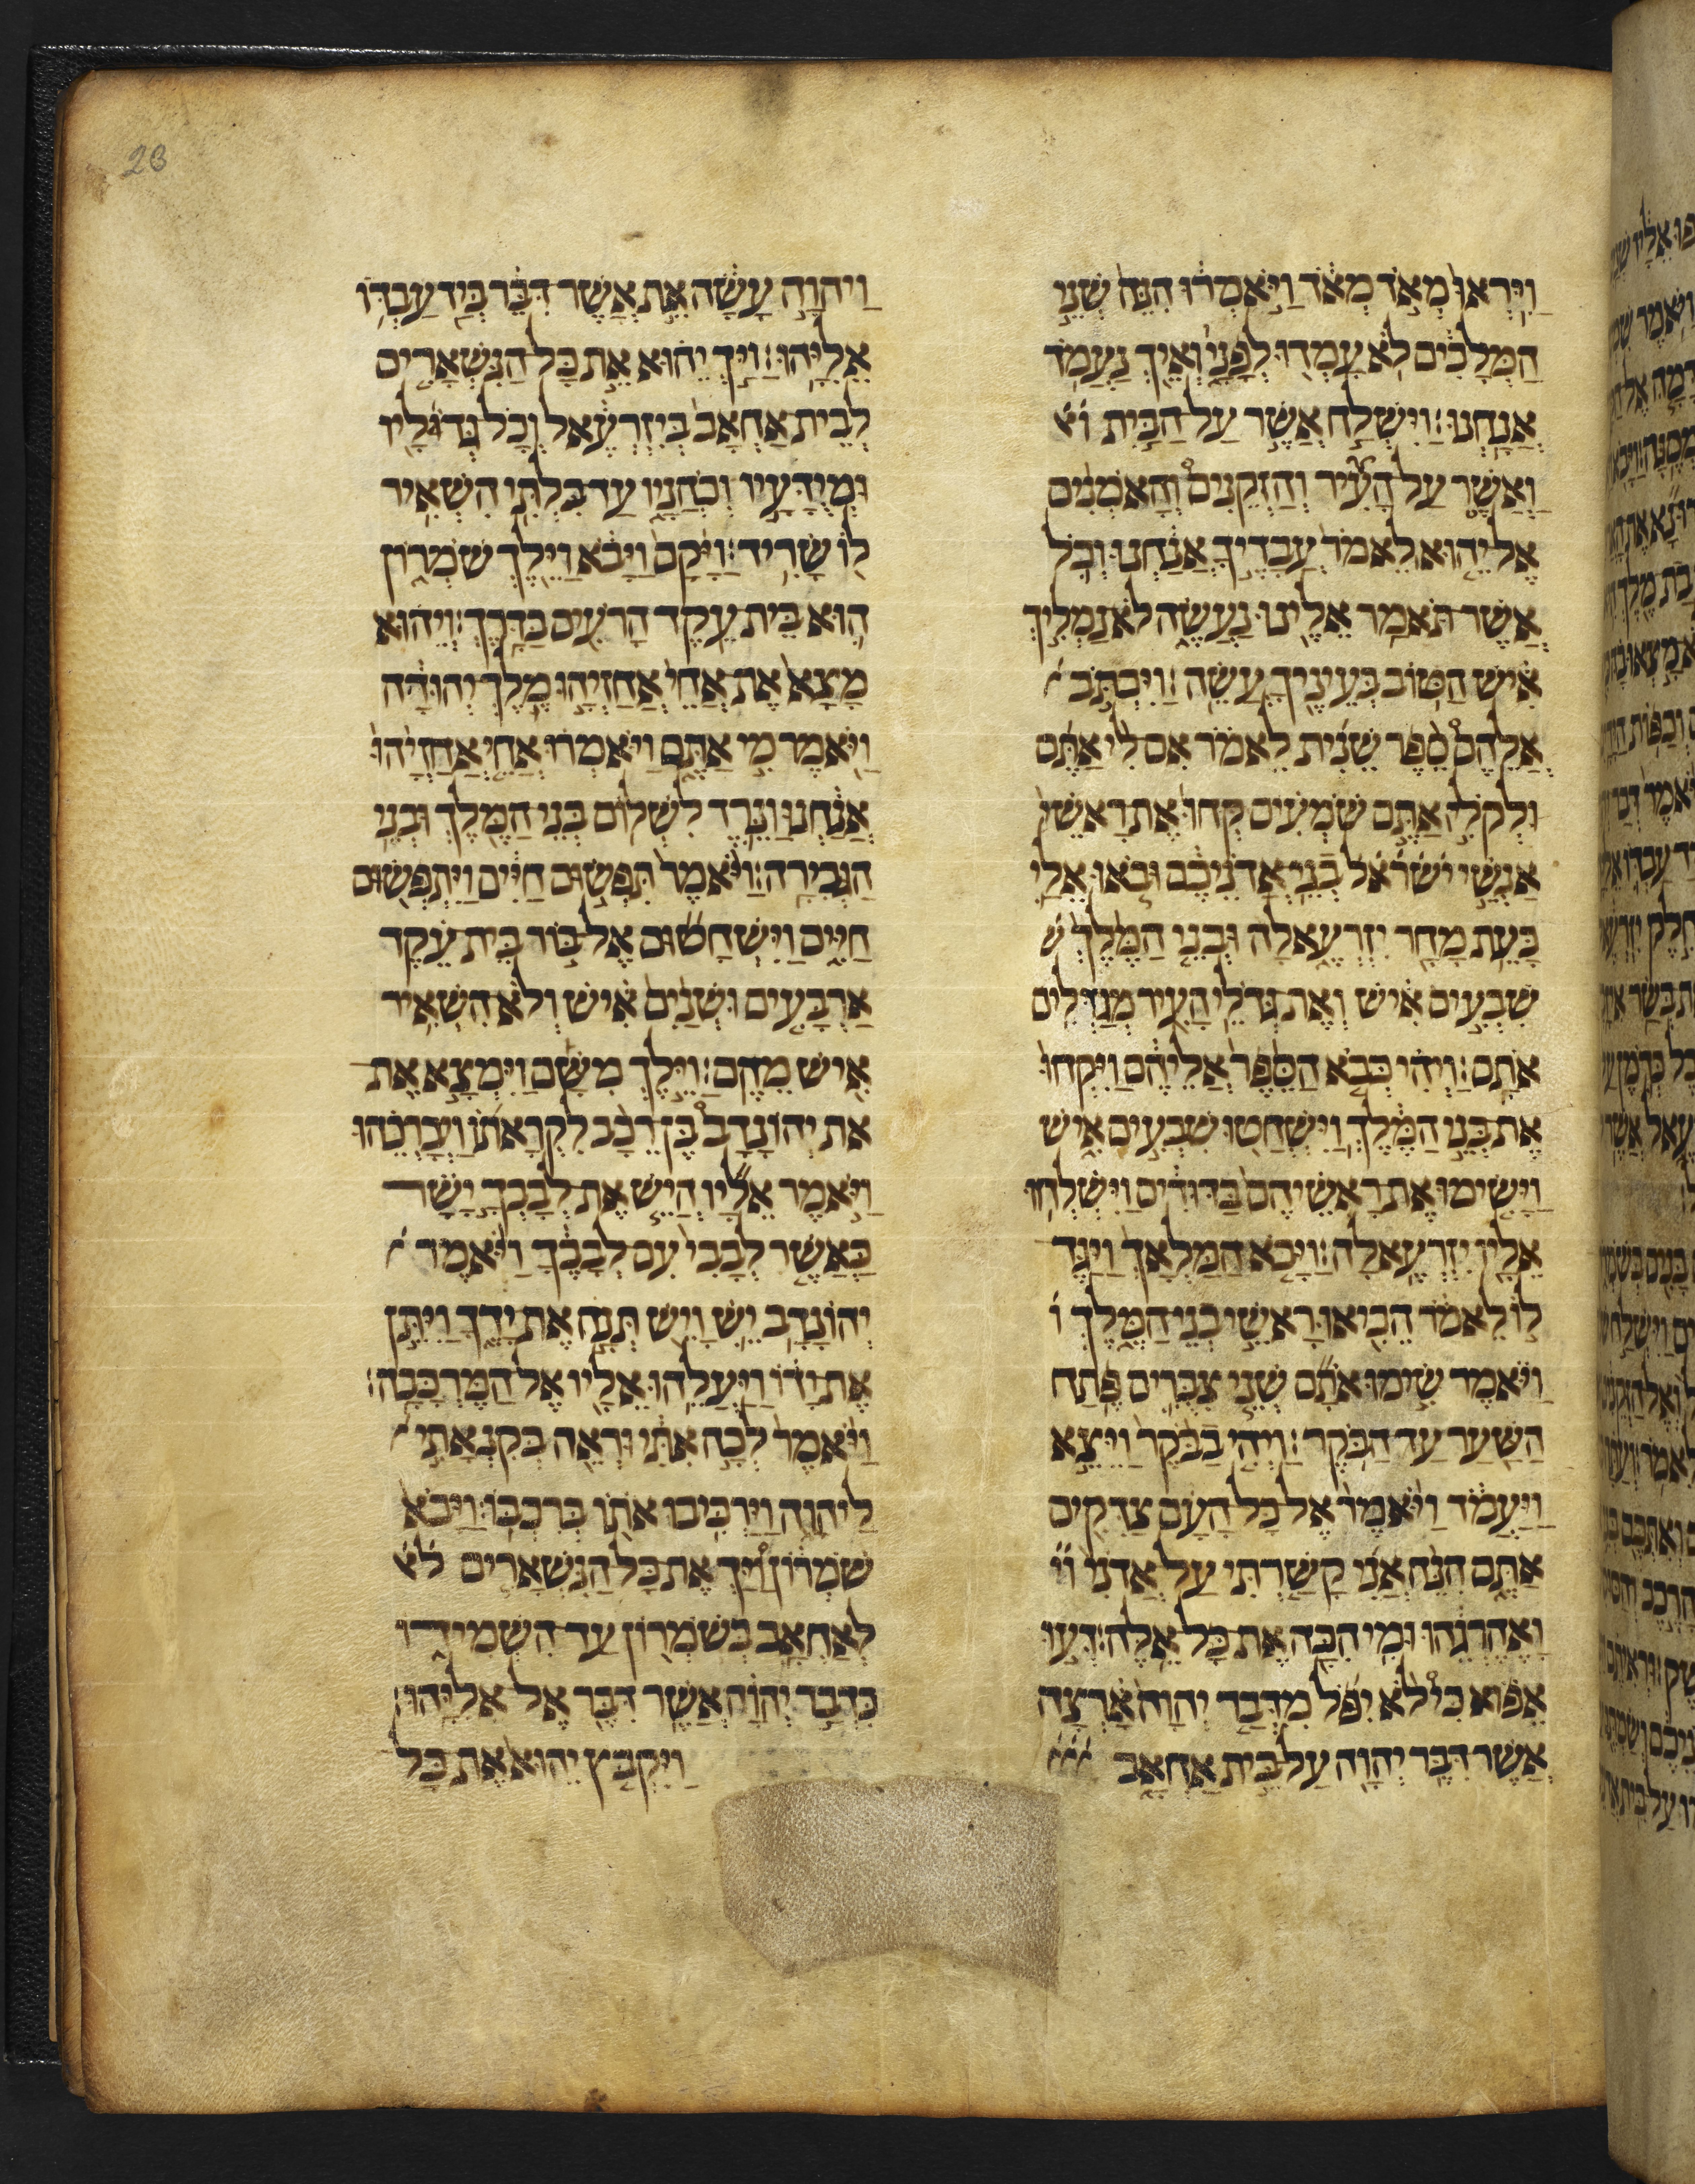 28
ויראו מאד מאד ויאמרו הנה שני
המלכים לא עמדו לפניו ואיך נעמד
אנחנו׃ וישלח אשר על הבית וא
ואשר על העיר והזקנים והאמנים
אל יהוא לאמר עבדיך אנחנו וכל
אשר תאמר אלינו נעשה לא נמליך
איש הטוב בעיניך עשה׃ ויכתב
אלהם ספר שנית לאמר אם לי אתם
ולקלי אתם שמעים קחו את ראשי
אנשי ישראל בני אדניכם ובאו אלי
כעת מחר יזרעאלה ובני המלך ש
שבעים איש ואת גדלי העיר מגדלים
אתם׃ ויהי כבא הספר אליהם ויקחו
את בני המלך וישחטו שבעים איש
וישימו את ראשיהם בדודים וישלחו
אליו יזרעאלה׃ ויבא המלאך ויגד
לו לאמר הביאו ראשי בני המלך ו
ויאמר שימו אתם שני צברים פתח
השער עד הבקר׃ ויהי בבקר ויצא
ויעמד ויאמר אל כל העם צדקים
אתם הנה אני קשרתי על אדני וי
ואהרגהו ומי הכה את כל אלה׃ דעו
אפוא כי לא יפל מדבר יהוה ארצה
אשר דבר יהוה על בית אחאב
ויהוה עשה את אשר דבר ביד עבדו
אליהו׃ ויך יהוא את כל הנשארים
לבית אחאב ביזרעאל וכל גדוליו
ומידעיו וכהניו עד בלתי השאיר
לו שריד׃ ויקם ויבא וילך שמרון
הוא בית עקד הרעים בדרך׃ ויהוא
מצא את אחי אחזיהו מלך יהודה
ויאמר מי אתם ויאמרו אחי אחזיהו
אנחנו ונרד לשלום בני המלך ובני
הגבירה׃ ויאמר תפשום חיים ויתפשום
חיים וישחטום אל בור בית עקד
ארבעים ושנים איש ולא השאיר
איש מהם׃ וילך משם וימצא את
את יהונדב בן רכב לקראתו ויברכהו
ויאמר אליו היש את לבבך ישר
כאשר לבבי עם לבבך ויאמר
יהונדב יש ויש תנה את ידך ויתן
את ידו ויעלהו אליו אל המרכבה׃
ויאמר לכה אתי וראה בקנאתי
ליהוה וירכיבו אתו ברכבו׃ ויבא
שמרון ויך את כל הנשארים לא
לאחאב בשמרון עד השמידו
כדבר יהוה אשר דבר אל אליהו׃
ויקבץ יהוא את כל